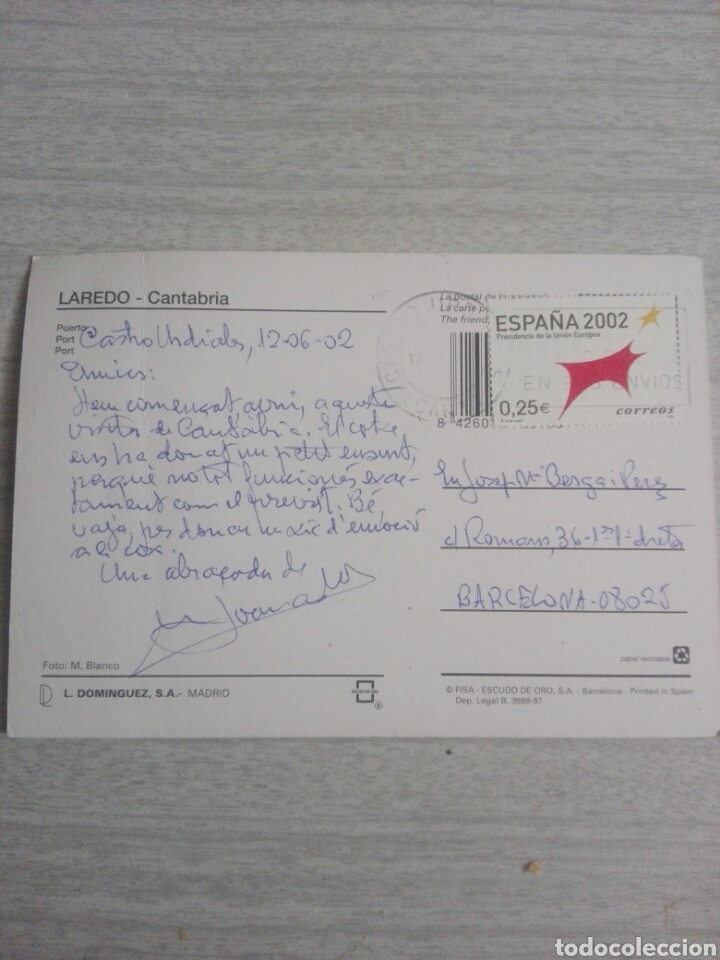 LAREDO - Cantabria
Puerto
Port
Port
Castro Urdiales, 12-06-02
Amics:
Hem començat avui, aquesta
visita de Cantàbria. El cotxe
ens ha donat un petit ensurt,
perquè no tot funciona exac-
tament com el previst. Bé,
vaja, per donar una mica d'emoció
a la cosa.
Una abraçada de
Joan
Foto: M. Blanco
L. DOMINGUEZ, S.A.- MADRID
La postal de
La carte p
The friend
8 42601
ESPAÑA 2002
Presidencia de la Unión Europea
0,25€
correos
EN SUS ENVIOS
En Josep Mª Berga i Perez
c/ Romans, 36-1er 1ª dreta
BARCELONA-08025
papel reciclable
© FISA - ESCUDO DE ORO, S.A. - Barcelona - Printed in Spain
Dep. Legal B. 3898-97
todocoleccion